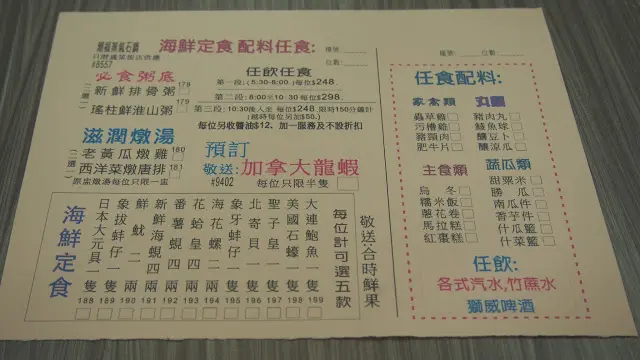 海鮮定食 配料任食:
檯號____ 位數____
只限堂食飯店供應
#8557
必食粥底
二選一
新鮮排骨粥 178
瑤柱鮮淮山粥 179
滋潤燉湯
二選一
老黃瓜燉雞 180
西洋菜燉唐排 181
原盅燉湯每位只限一盅
任飲任食
第一段: (5:30-8:00) 每位$248.
第二段: 8:00至10:30 每位$298.
第三段: 10:30後入坐 每位$248. 限時150分鐘計
(越時每位另加$50.)
每位另收醬油$12、加一服務及不設折扣
預訂
敬送: 加拿大龍蝦
#9402 每位只限半隻
海鮮定食
日本大元貝一隻 188
象拔蚌仔一隻 189
鮮魷二兩 190
新鮮海蜆四兩 191
番薯蜆四兩 192
花蛤皇四兩 193
海花螺二兩 194
象牙蚌仔一隻 195
北寄貝一隻 196
聖子皇一隻 197
美國石蠔一隻 198
大連鮑魚一隻 199
每位計可選五款
敬送:合時鮮果
檯號:____ 位數____
任食配料:
家禽類
蟲草雞
污糟雞
豬頸肉
肥牛片
丸類
豬肉丸
鯪魚球
釀豆卜
釀涼瓜
主食類
烏冬
糯米飯
蔥花卷
馬拉糕
紅棗糕
蔬瓜類
甜粟米
勝瓜
南瓜件
香芋件
什瓜籃
什菜籃
任飲:
各式汽水,竹蔗水
獅威啤酒